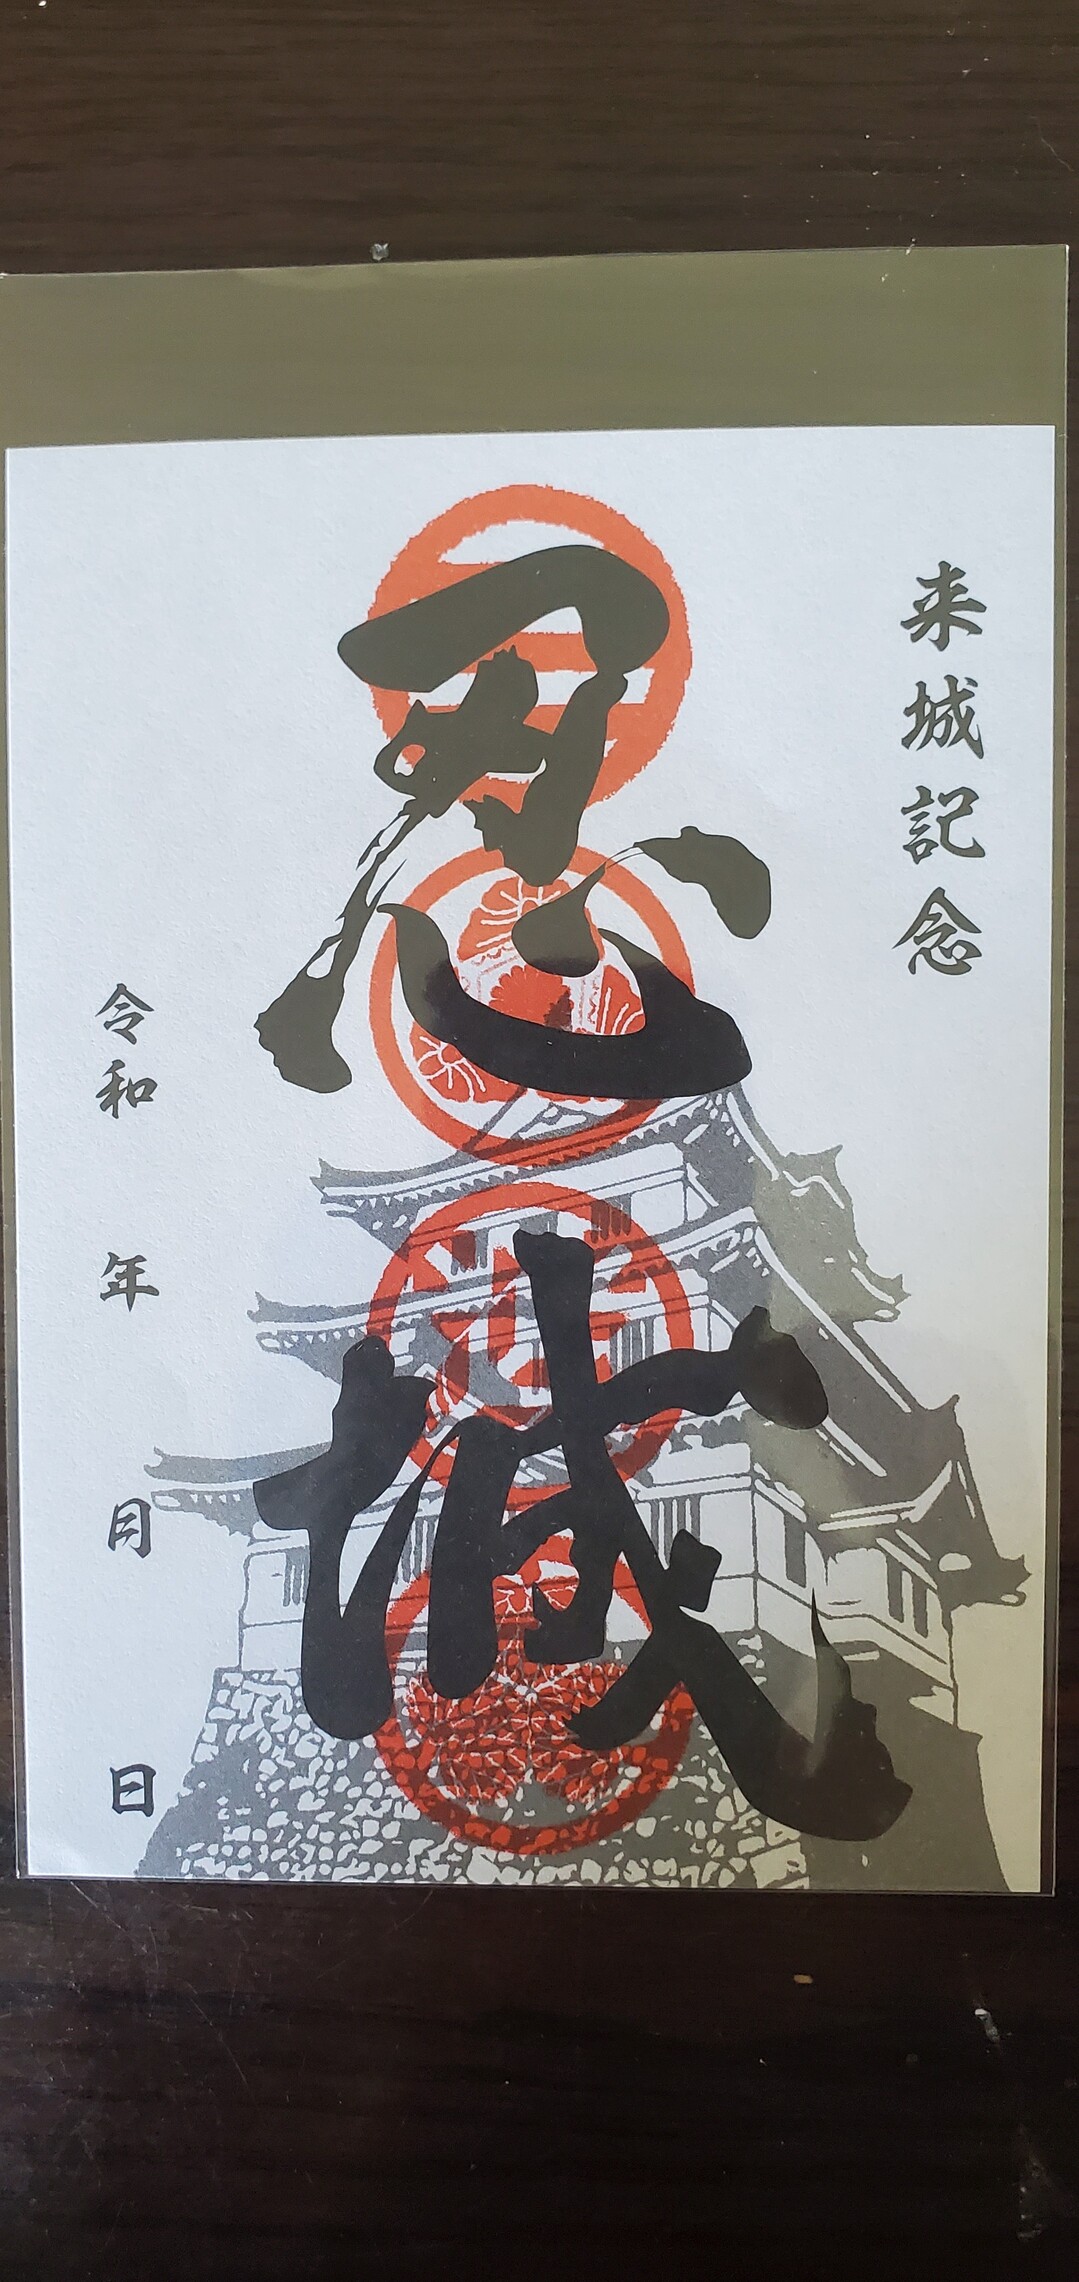 来城記念
忍城
令和 年 月 日